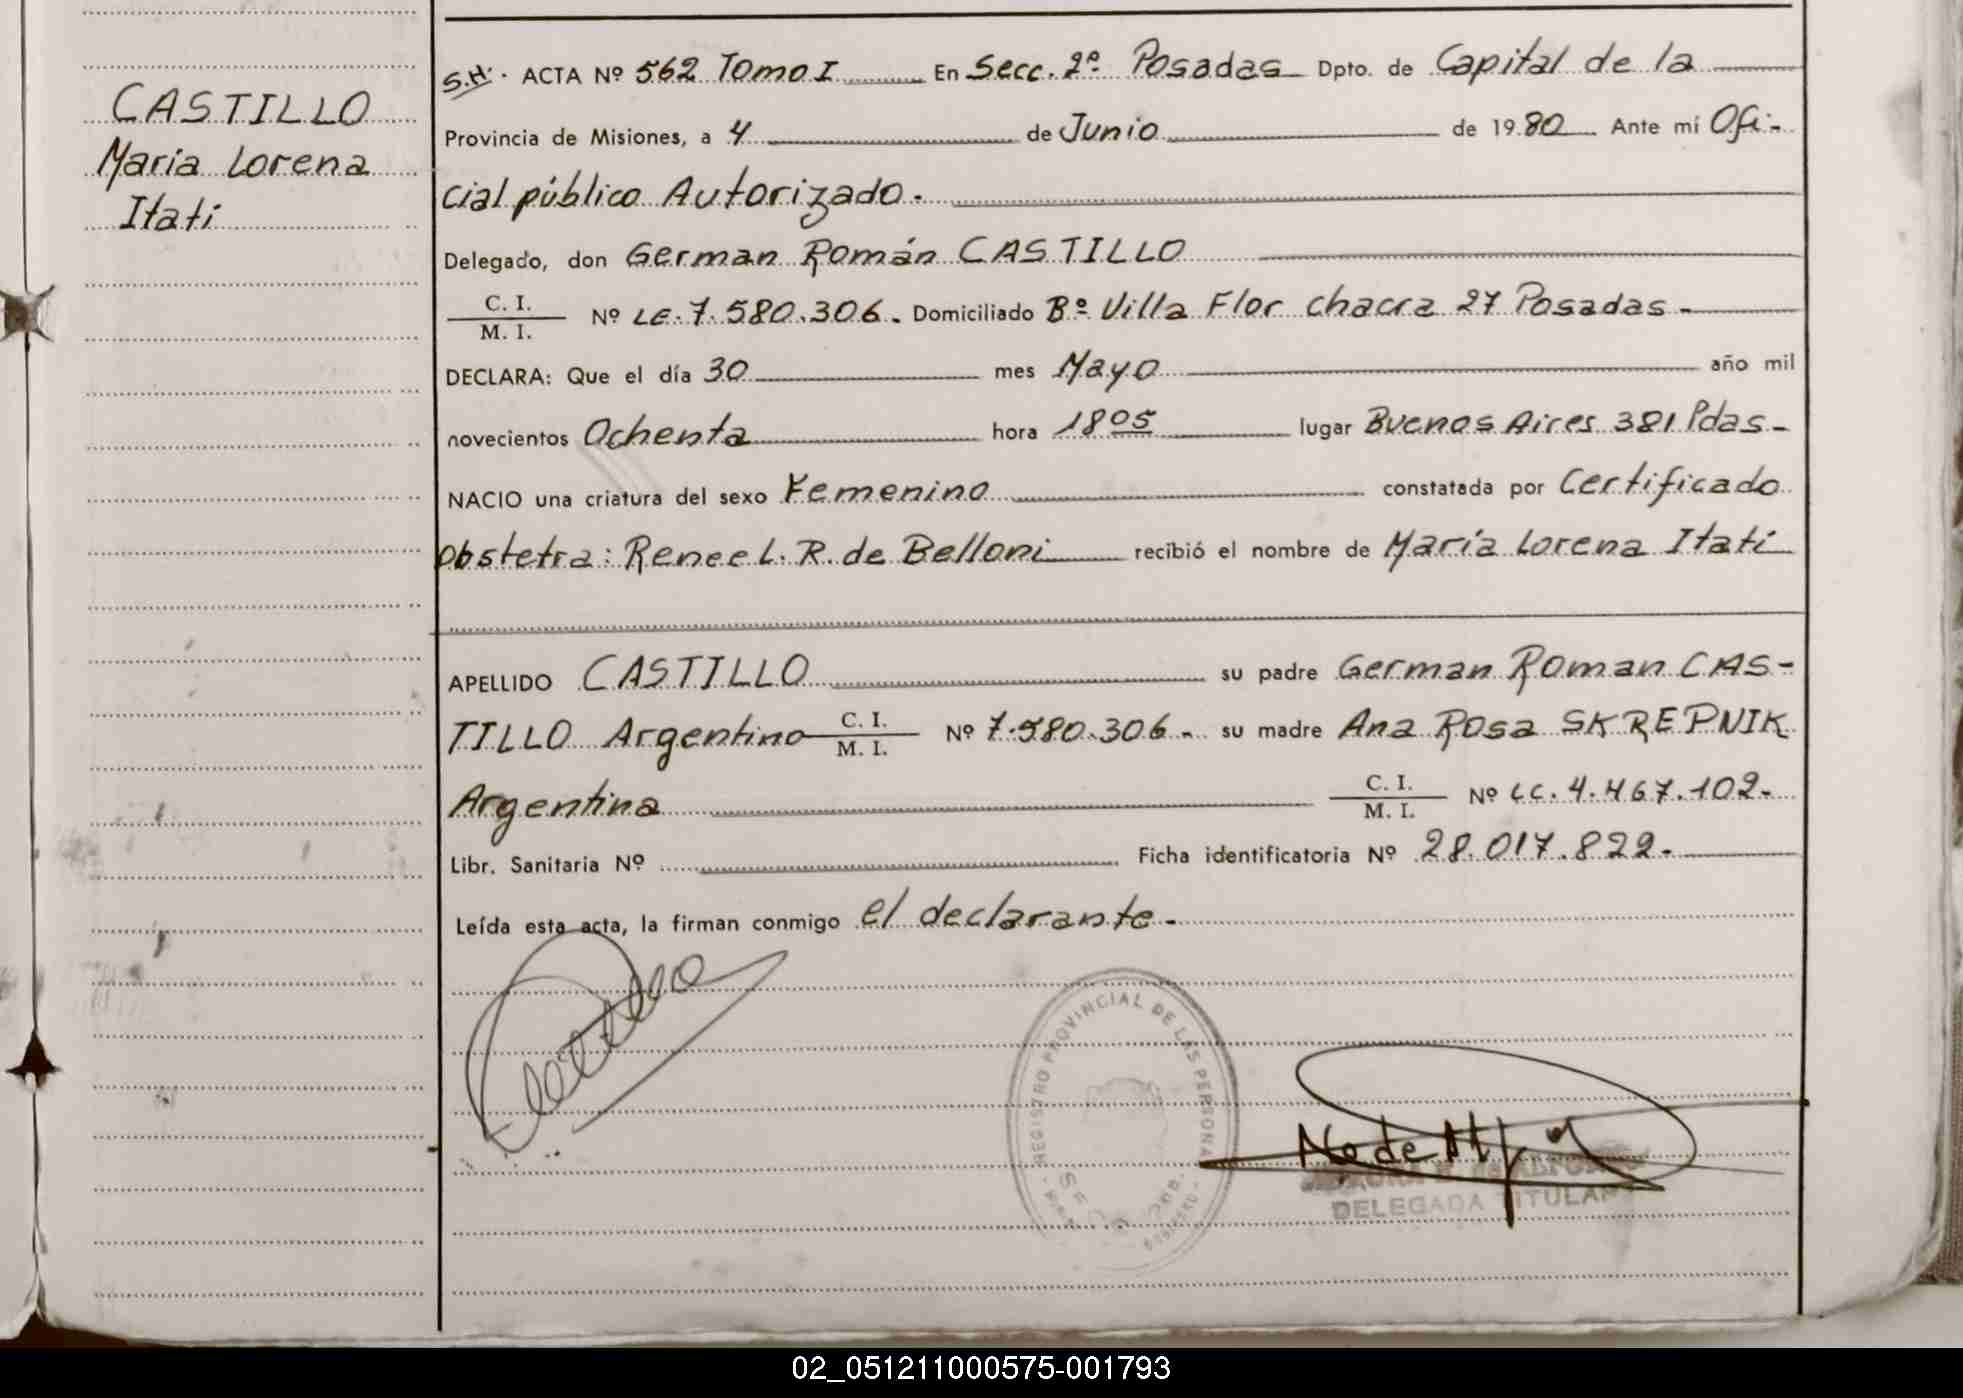 CASTILLO
Maria Lorena
Itati
S.H. ACTA Nº 562 Tomo I En Secc. 2º Posadas Dpto. de Capital de la
Provincia de Misiones, a 4 de Junio de 1980 Ante mí Ofi-
cial público Autorizado.
Delegado, don German Román CASTILLO
C. I.
M. I. Nº LE. 7.580.306. Domiciliado Bº Villa Flor Chacra 27 Posadas -
DECLARA: Que el día 30 mes Mayo año mil
novecientos Ochenta hora 1805 lugar Buenos Aires 381 Pdas-
NACIO una criatura del sexo Femenino constatada por Certificado
Obstetra: Renee L. R. de Belloni recibió el nombre de María Lorena Itati
APELLIDO CASTILLO su padre German Roman CAS-
TILLO Argentino C. I. M. I. Nº 7.580.306.- su madre Ana Rosa SKREPNIK
Argentina C. I. M. I. Nº LC. 4.467.102-
Libr. Sanitaria Nº Ficha identificatoria Nº 28.017.822.-
Leída esta acta, la firman conmigo el declarante.-
Castillo
REGISTRO PROVINCIAL DE LAS PERSONAS
DELEGADA TITULAR
02_051211000575-001793